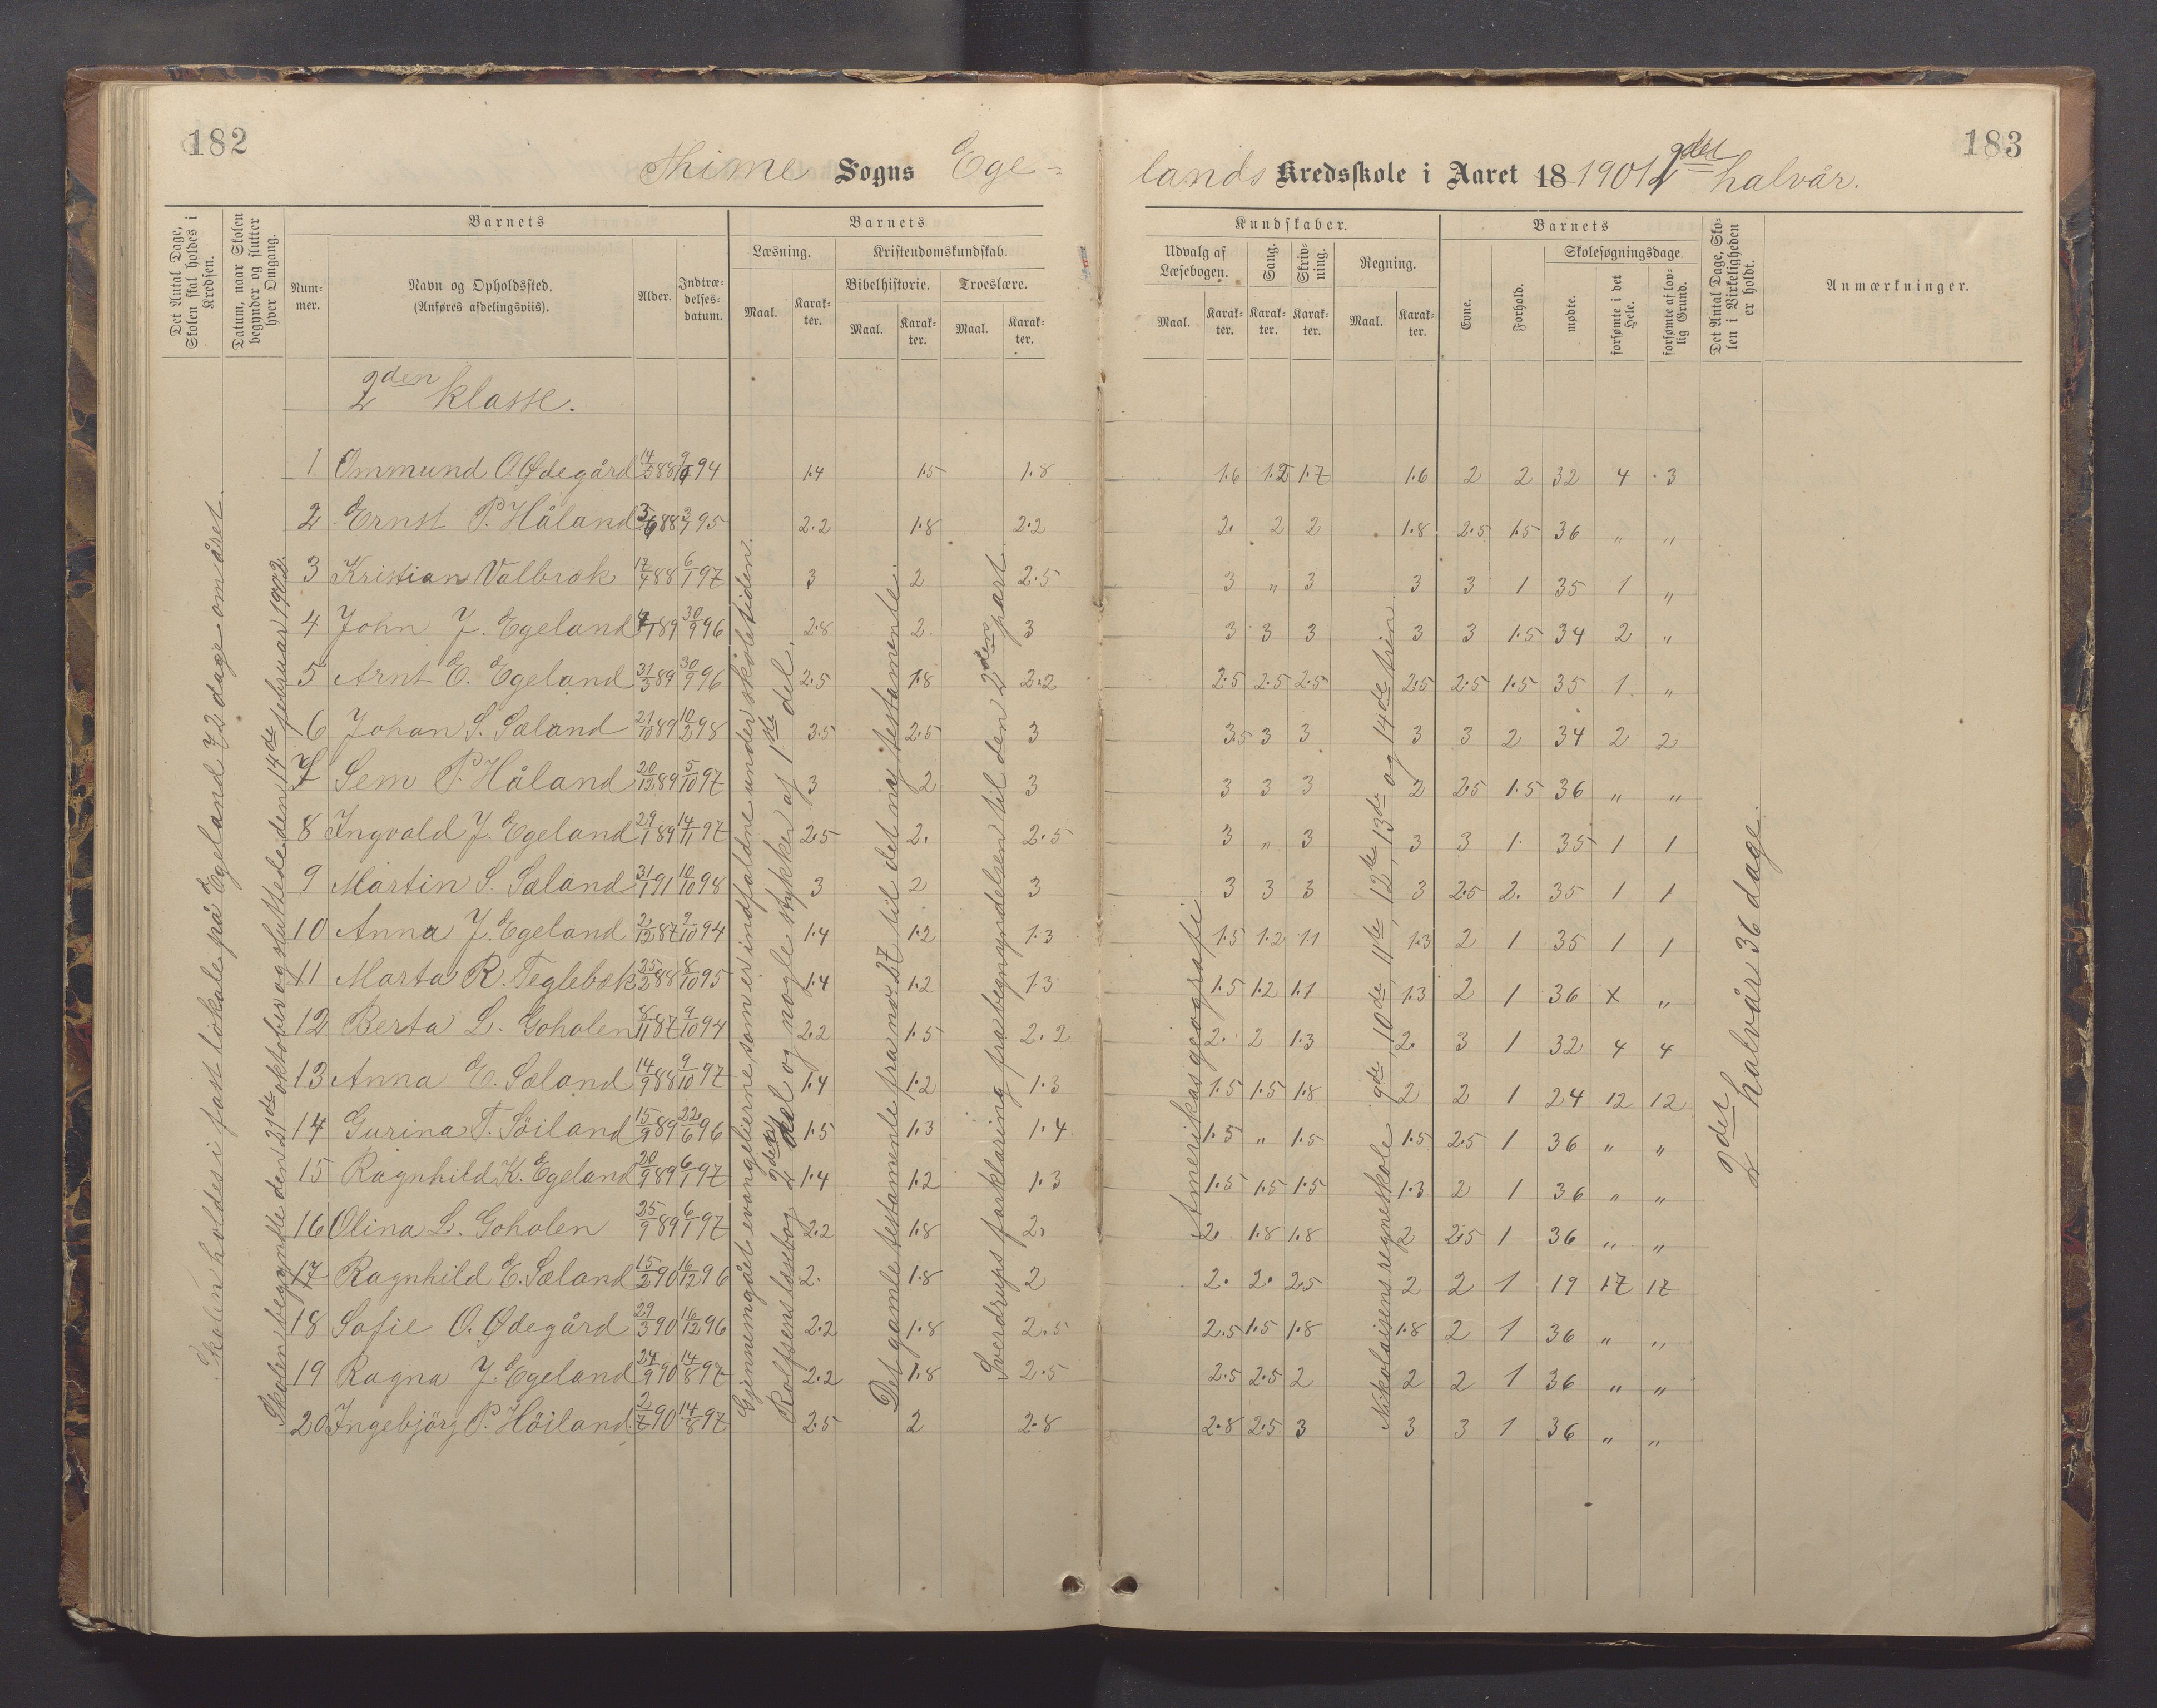 182
183
Thime Sogns Ege-
lands Kredsskole i Aaret 18 1901 2det halvår.
Det Antal Dage, Skolen skal holdes i Kredsen.
Datum, naar Skolen begynder og slutter hver Omgang.
Barnets
Num-mer.
Navn og Opholdssted.
(Anføres afdelingsviis).
Alder.
Indtræ-delses-datum.
Barnets
Læsning.
Maal.
Karak-ter.
Kristendomskundskab.
Bibelhistorie.
Maal.
Karak-ter.
Troeslære.
Maal.
Karak-ter.
Kundskaber.
Udvalg af Læsebogen.
Maal.
Karak-ter.
Sang.
Karak-ter.
Skriv-ning.
Karak-ter.
Regning.
Maal.
Karak-ter.
Barnets
Evne.
Forhold.
Skolesøgningsdage.
mødte.
forsømte i det Hele.
forsømte af lov-lig Grund.
Det Antal Dage, Sko-len i Virkeligheden er holdt.
Anmærkninger.
2den klasse.
1 Ommund O. Ødegård 14/5 88 94 1.4 1.5 1.8 1.6 1.2 1.7 1.6 2 2 32 4 3
2 Ernst P. Håland 88 3/1 95 2.2 1.8 2.2 2. 2 2 1.8 2.5 1.5 36 " "
3 Kristian Valbrek 17/4 88 6/1 97 3 2 2.5 3 " 3 3 3 1 35 1 "
4 John J. Egeland 89 30/9 96 2.8 2. 3 3 3 3 3 3 1.5 34 2 "
5 Arnt E. Egeland 31/3 89 30/9 96 2.5 1.8 2.2 2.5 2.5 2.5 2.5 2.5 1.5 35 1. "
6 Johan S. Sæland 21/10 89 10/2 98 3.5 2.5 3 3.5 3 3 3 3 2 34 2 2
7 Sem P. Håland 20/12 89 5/10 97 3 2 3 3 3 3 2 2.5 1.5 36 " "
8 Ingvald J. Egeland 29/1 89 14/11 97 2.5 2. 2.5 3 " 3 3 3 1. 35 1 1
9 Martin S. Sæland 31/1 91 10/10 98 3 2 3 3 3 3 3 2.5 2. 35 1 1
10 Anna J. Egeland 2/12 87 9/10 94 1.4 1.2 1.3 1.5 1.2 1.1 1.3 2 1 35 1 1
11 Marta R. Teglebek 25/2 88 8/10 95 1.4 1.2 1.3 1.5 1.2 1.1 1.3 2 1 36 x "
12 Berta L. Goholen 8/11 87 9/10 94 2.2 1.5 2.2 2. 2 1.3 2. 3 1 32 4 4
13 Anna E. Sæland 14/9 88 9/10 97 1.4 1.2 1.3 1.5 1.5 1.8 2 2 1 24 12 12
14 Gurina T. Söiland 15/9 89 22/6 96 1.5 1.3 1.4 1.5 " 1.5 1.5 2.5 1 36 " "
15 Ragnhild K. Egeland 20/9 89 6/1 97 1.4 1.2 1.3 1.5 1.5 1.5 1.3 2 1 36 " "
16 Olina L. Goholen 25/9 89 6/1 97 2.2 1.8 2. 2. 1.8 1.8 2 2.5 1 36 " "
17 Ragnhild E. Sæland 15/2 90 16/12 96 2. 1.8 2 2. 2. 2.5 2 2 1 19 17 17
18 Sofie O. Ødegård 29/3 90 16/12 96 2.2 1.8 2.5 2.5 1.5 1.8 1.8 2 1 36 " "
19 Ragna J. Egeland 24/9 90 14/8 97 2.2 1.8 2.5 2.5 2.5 2 2 2 1 36 " "
20 Ingebjörg P. Höiland. 2/7 90 14/8 97 2.5 2 2.8 2.8 2.5 3 3 3 1 36 " "
Skolen holdes i fast lokale på Egeland 72 dage om året.
Skolen begyndte den 21de oktober og sluttede den 14de februar 1902.
Gjennemgået evangelierne som er indfaldne under skoletiden.
Rolfsens læsebog 2den del og nogle stykker af 1ste del.
Det gamle testamente fra no. 27 til det ny testamente.
Sverdrups forklaring fra begynyndelsen til den 2den part.
Amerikas geografi
Nikolaisens regneskole 9de, 10de, 11te, 12te, 13de og 14de trin.
2det halvår 36 dage.